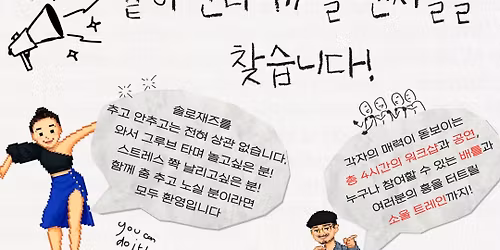 찾습니다!
솔로재즈를
추고 안추고는 전혀 상관 없습니다.
와서 그루브 타며 놀고싶은 분!
스트레스 쫙 날리고싶은 분!
함께 춤 추고 노실 분이라면
모두 환영입니다
각자의 매력이 돋보이는
총 4시간의 워크샵과 공연,
누구나 참여할 수 있는 배틀과
여러분의 흥을 터트릴
소울 트레인까지!
you can
do it!